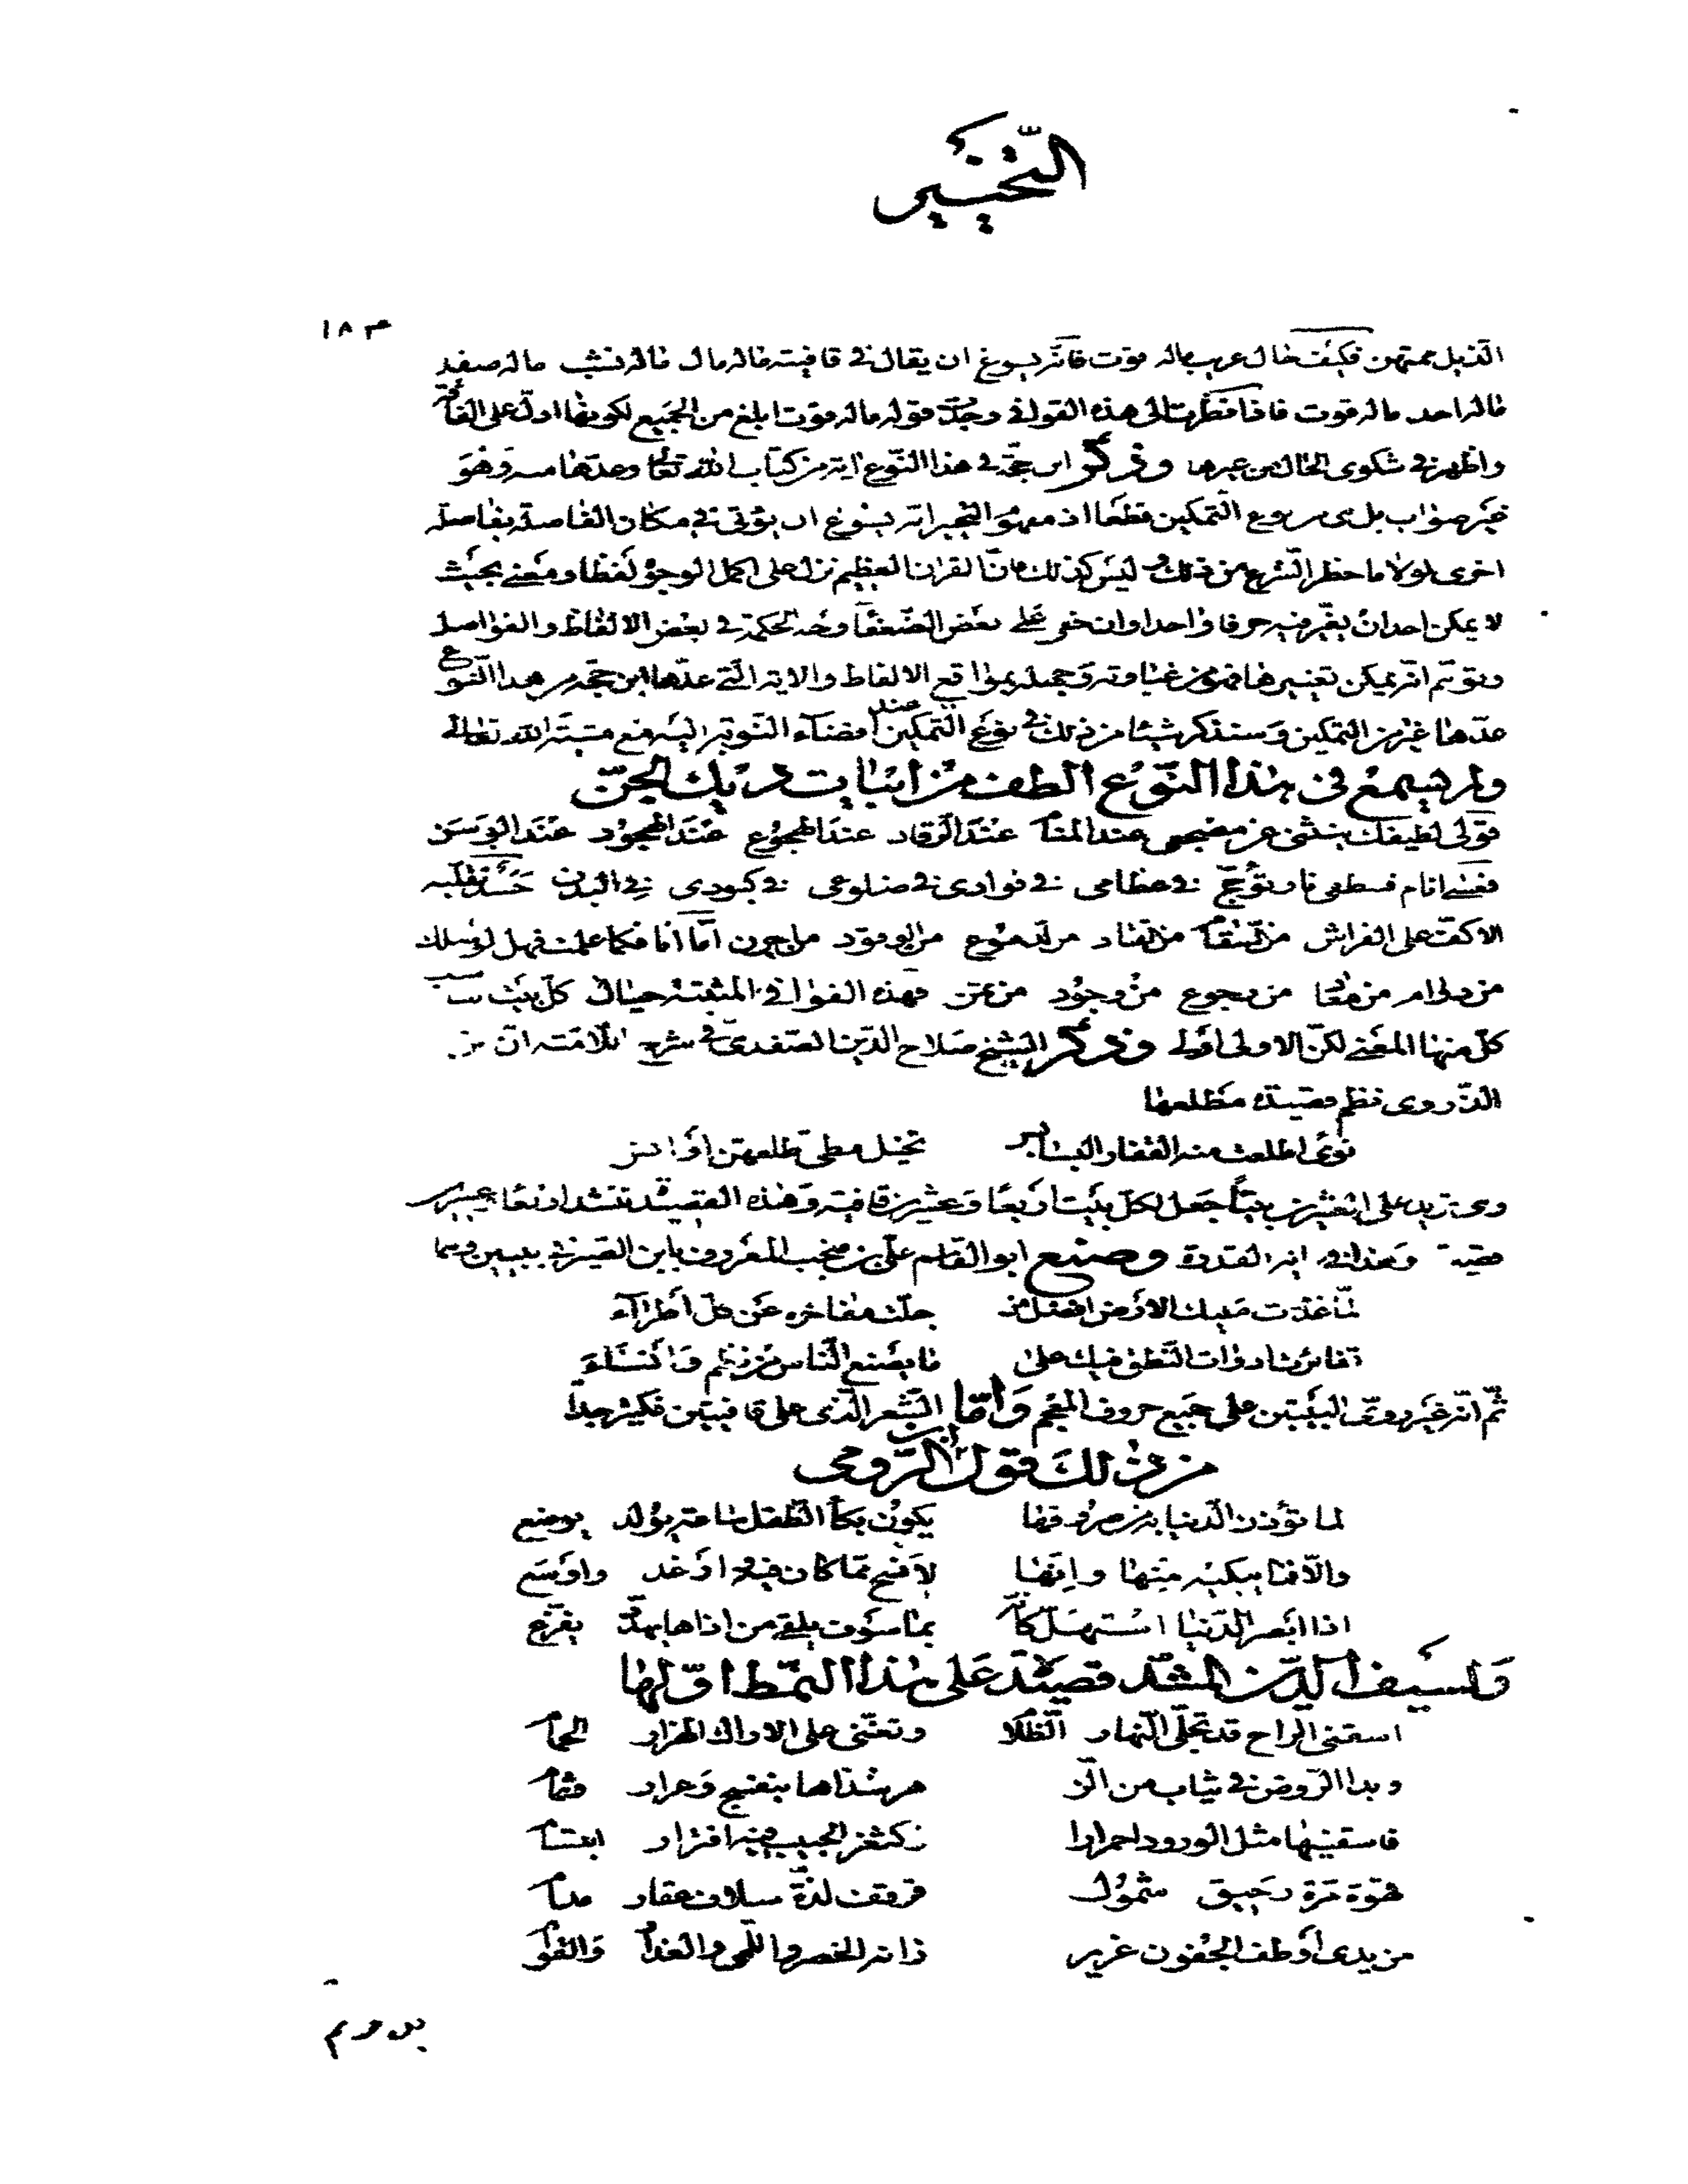 التخيير
١٨٣
الذيل ممتهن فكيف حال غريب ماله قوت فانه يسوغ ان يقال في قافيته ماله مال ماله نشب ماله صفد
ماله احد ماله قوت فاذا نظرت الى هذه القوافي وجدت قوله ماله قوت ابلغ من الجميع لكونها ادل على الفاقة
واظهر في شكوى الحال من غيرها وذكر ابن حجة في هذا النوع اية من كتاب الله تعالى وعدها منه وهو
غير صواب بل هي من نوع التمكين قطعا اذ مفهوم التخيير انه يسوغ ان يؤتى في مكان الفاصلة بفاصلة
اخرى لولا ما حظر الشرع من ذلك وليس كذلك فان القران العظيم نزل على اكمل الوجوه لفظا ومعنى بحيث
لا يمكن احدا ان يغير فيه حرفا واحدا وان خفي على بعض الضعفا وجه الحكمة في بعض الالفاظ والفواصل
وتوهم انه يمكن تغييرها فهو من غباوته وجهله بمواقع الالفاظ والاية التي عدها ابن حجة من هذا النوع
عدها غيره من التمكين وسنذكر شيئا من ذلك في نوع التمكين عند افضاء النوبة اليه مع مشية الله تعالى
ولم يسمع في هذا النوع الطف من ابيات ديك الجن
قولي لطيفك ينثني عن مضجعي عند المنام عند الرقاد عند الهجوع عند الهجود عند الوسن
فعسى انام فتنطفي نار تؤجج في عظامي في فؤادي في ضلوعي في كبودي في البدن جسد تقلبه
الاكف على الفراش من سقام من قتاد من دموع من وقود من حزن اما انا فكما علمت فهل لوصلك
من دوام من معاد من رجوع من وجود من ثمن فهذه القوافي المثبتة حيال كل بيت يناسب
كل منها المعنى لكن الاولى اولى وذكر الشيخ صلاح الدين الصفدي في شرح اللامية ان
الذروي نظم قصيدة مطلعها
نوى اطلعت منه القفار البسابر تخيل مطي طلعهن اوانس
وهي تزيد على العشرين بيتا جعل لكل بيت اربعا وعشرين قافية وهذه القصيدة تنشد اربعا وعشرين
قصيدة وهذا في القدرة وصنع ابو القاسم علي بن منجب المعروف بابن الصيرفي بيتين وهما
لما غدوت مليك الارض افضل من جلت مفاخره عن كل اطراء
تغايرت ادوات النطق فيك على ما يصنع الناس من نظم وانشاء
ثم انه غير روي البيتين على جميع حروف المعجم واما الشعر الذي على قافيتين فكثير جدا
من ذلك قول ابن الرومي
لما تؤذن الدنيا به من صروفها يكون بكاء الطفل ساعة يولد يوضع
والا فما يبكيه منها وانها لافسح مما كان فيه وارغد واوسع
اذا ابصر الدنيا استهل كانه بما سوف يلقى من اذاها يهدد يفزع
ولسيف الدين المشد قصيدة على هذا النمط اولها
اسقني الراح قد تجلى النهار الظلام وتغنى على الاراك الهزار الحمام
وبدا الروض في ثياب من الز هر شذاها بنفسج وعرار وثمام
فاسقنيها مثل الورود احمرارا كثغر الحبيب فيه افترار ابتسام
قهوة مزة رحيق شمول قرقف لذة سلاف عقار مدام
من يدي اوطف الجفون غرير زانه الخصر واللمى والعذار والقوام